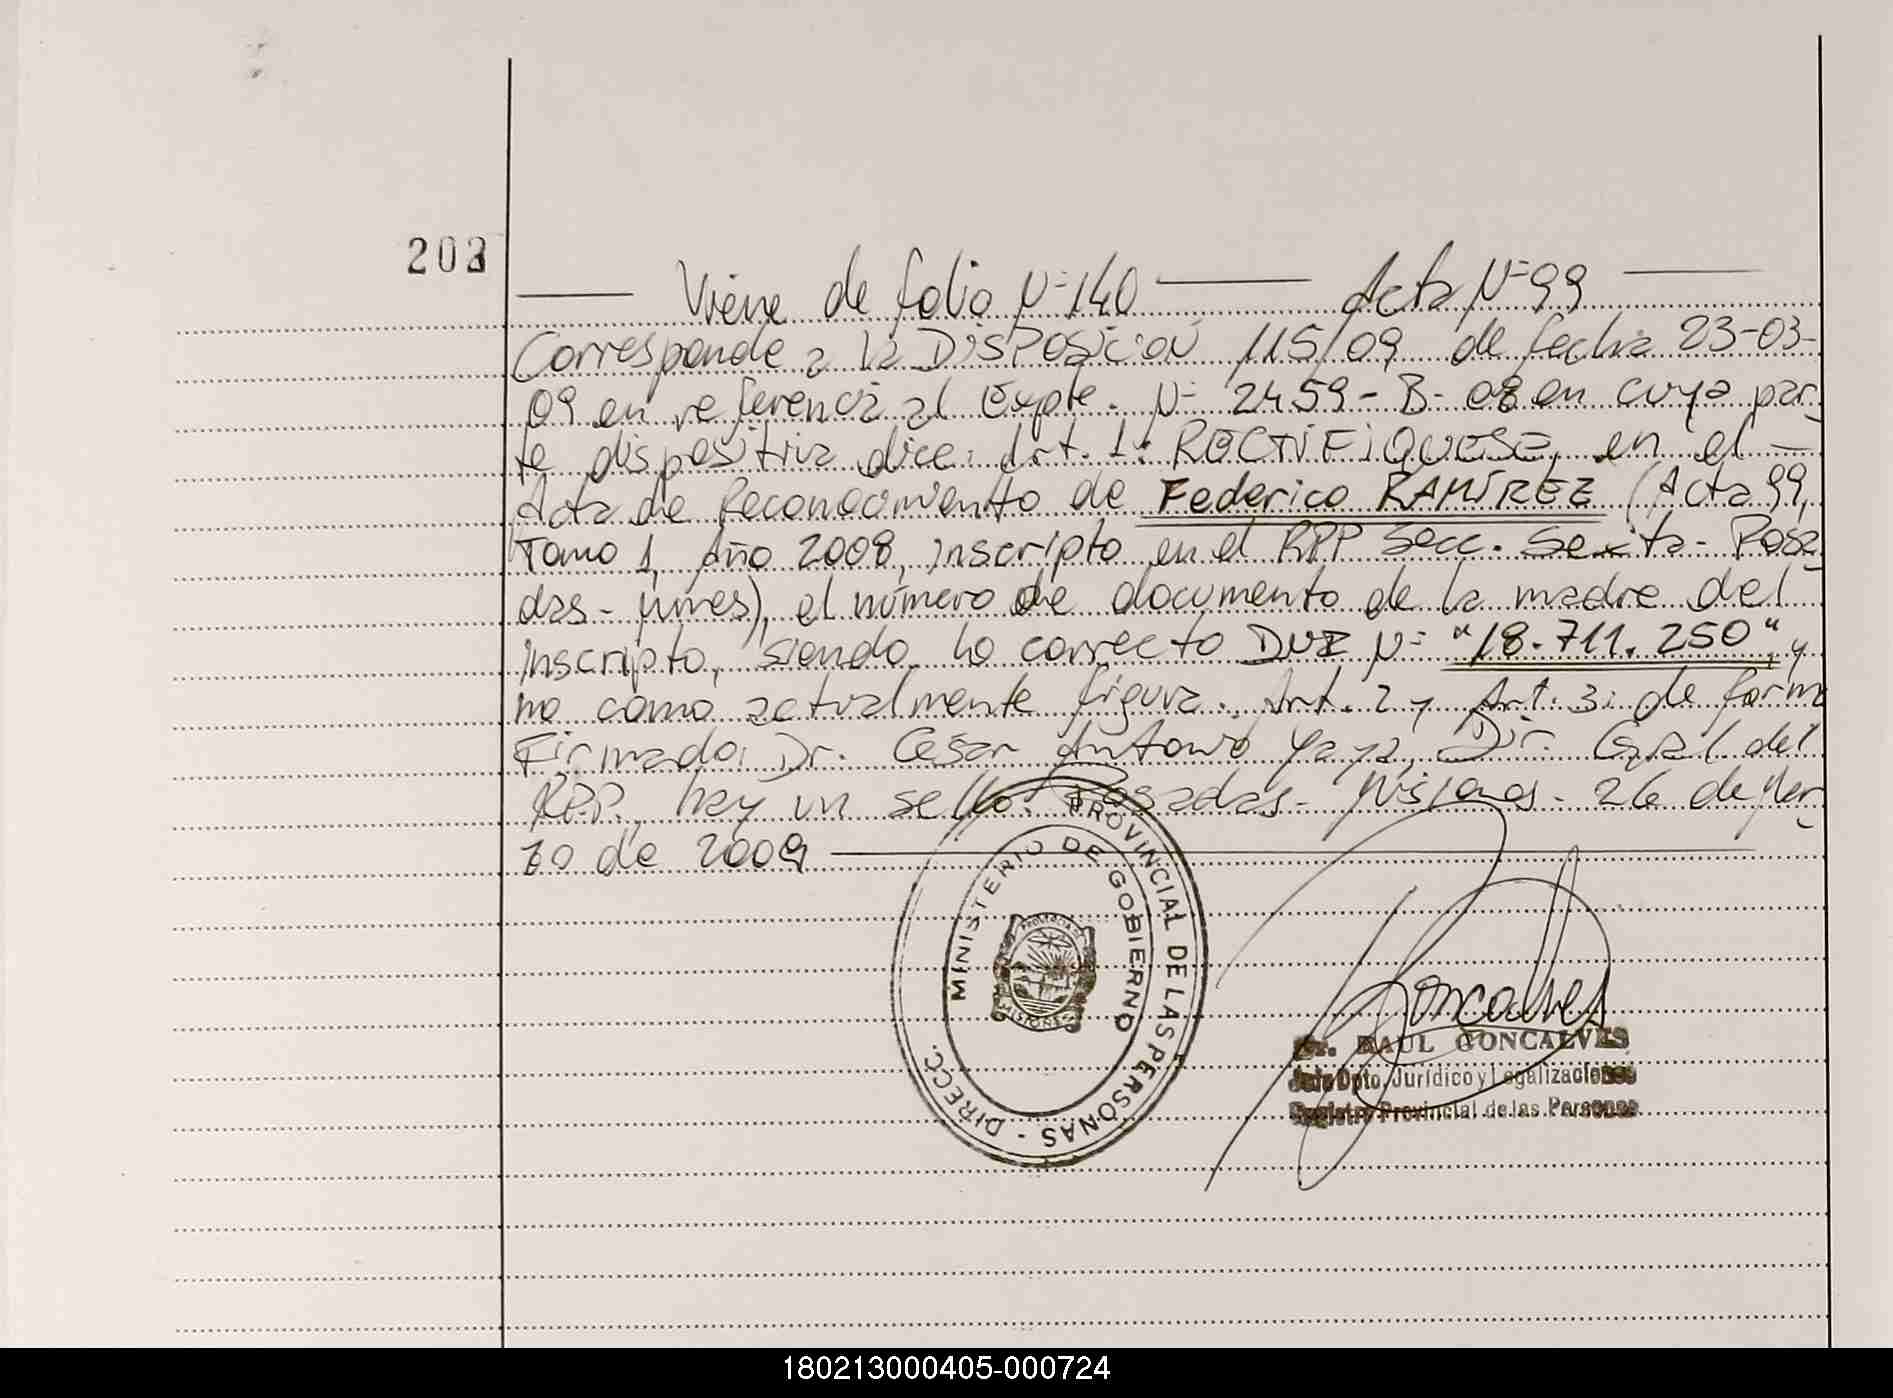 203
Viene de folio Nº 140 Acta Nº 99
Corresponde a la DISPOSICION 115/09 de fecha 23-03-
09 en referencia al Expte. Nº 2459-B-08 en cuya par-
te dispositiva dice: Art. 1: RECTIFIQUESE, en el
Acta de Reconocimiento de Federico RAMÍREZ (Acta 99,
Tomo 1, Año 2008, inscripto en el RPP Secc. Sexta - Posa-
das - Mnes), el número de documento de la madre del
inscripto, siendo lo correcto DNI Nº "18.711.250", y
no como actualmente figura. Art. 2 y Art. 3: de forma
Firmado: Dr. Cesar Antonio Yaya, Dir. Gral del
RPP., hay un sello. Posadas - Misiones - 26 de Mar-
zo de 2009
DIRECC. PROVINCIAL DE LAS PERSONAS -
MINISTERIO DE GOBIERNO
MISIONES
Goncalves
Dr. RAUL GONCALVES
Jefe Dpto. Jurídico y Legalizaciones
Registro Provincial de las Personas
180213000405-000724